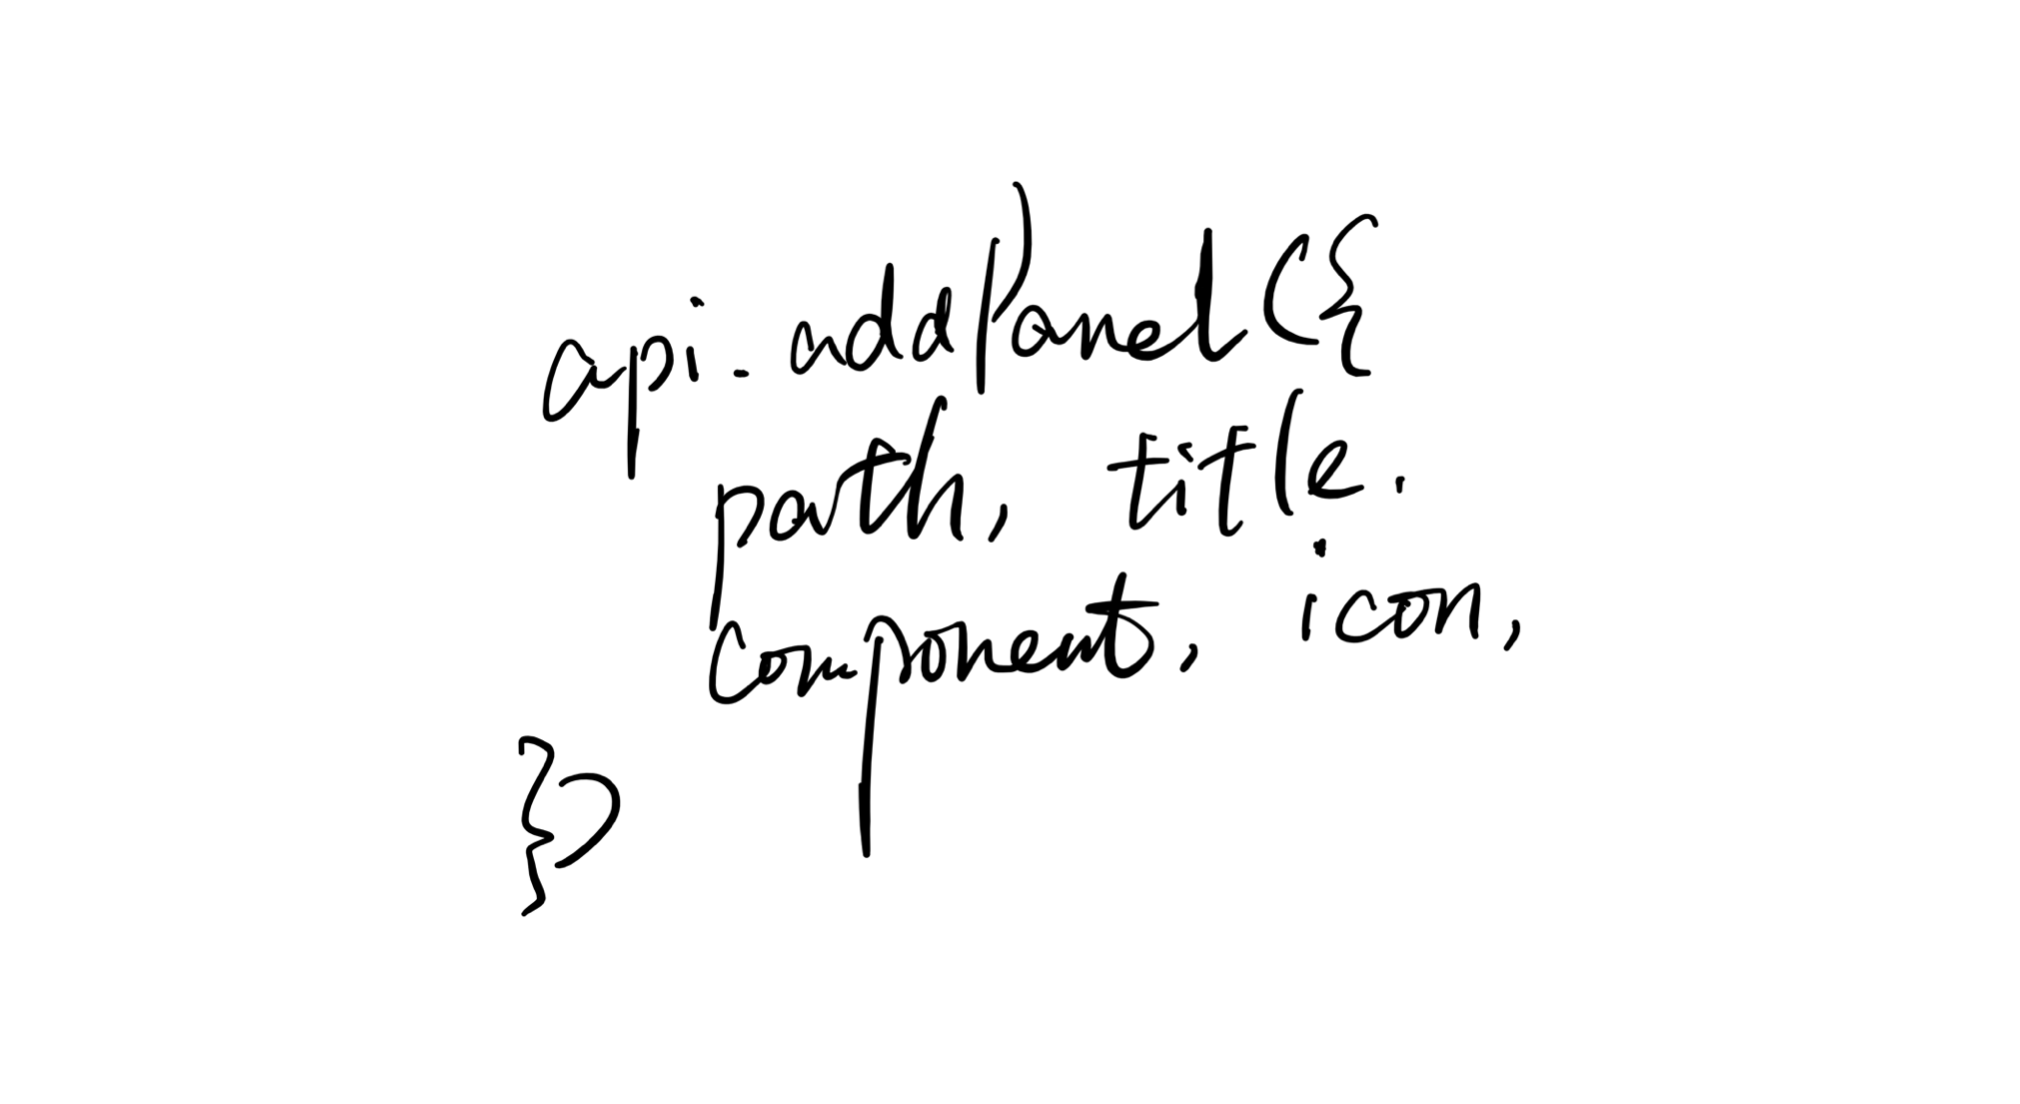 api.addPanel({
path, title.
component, icon,
})